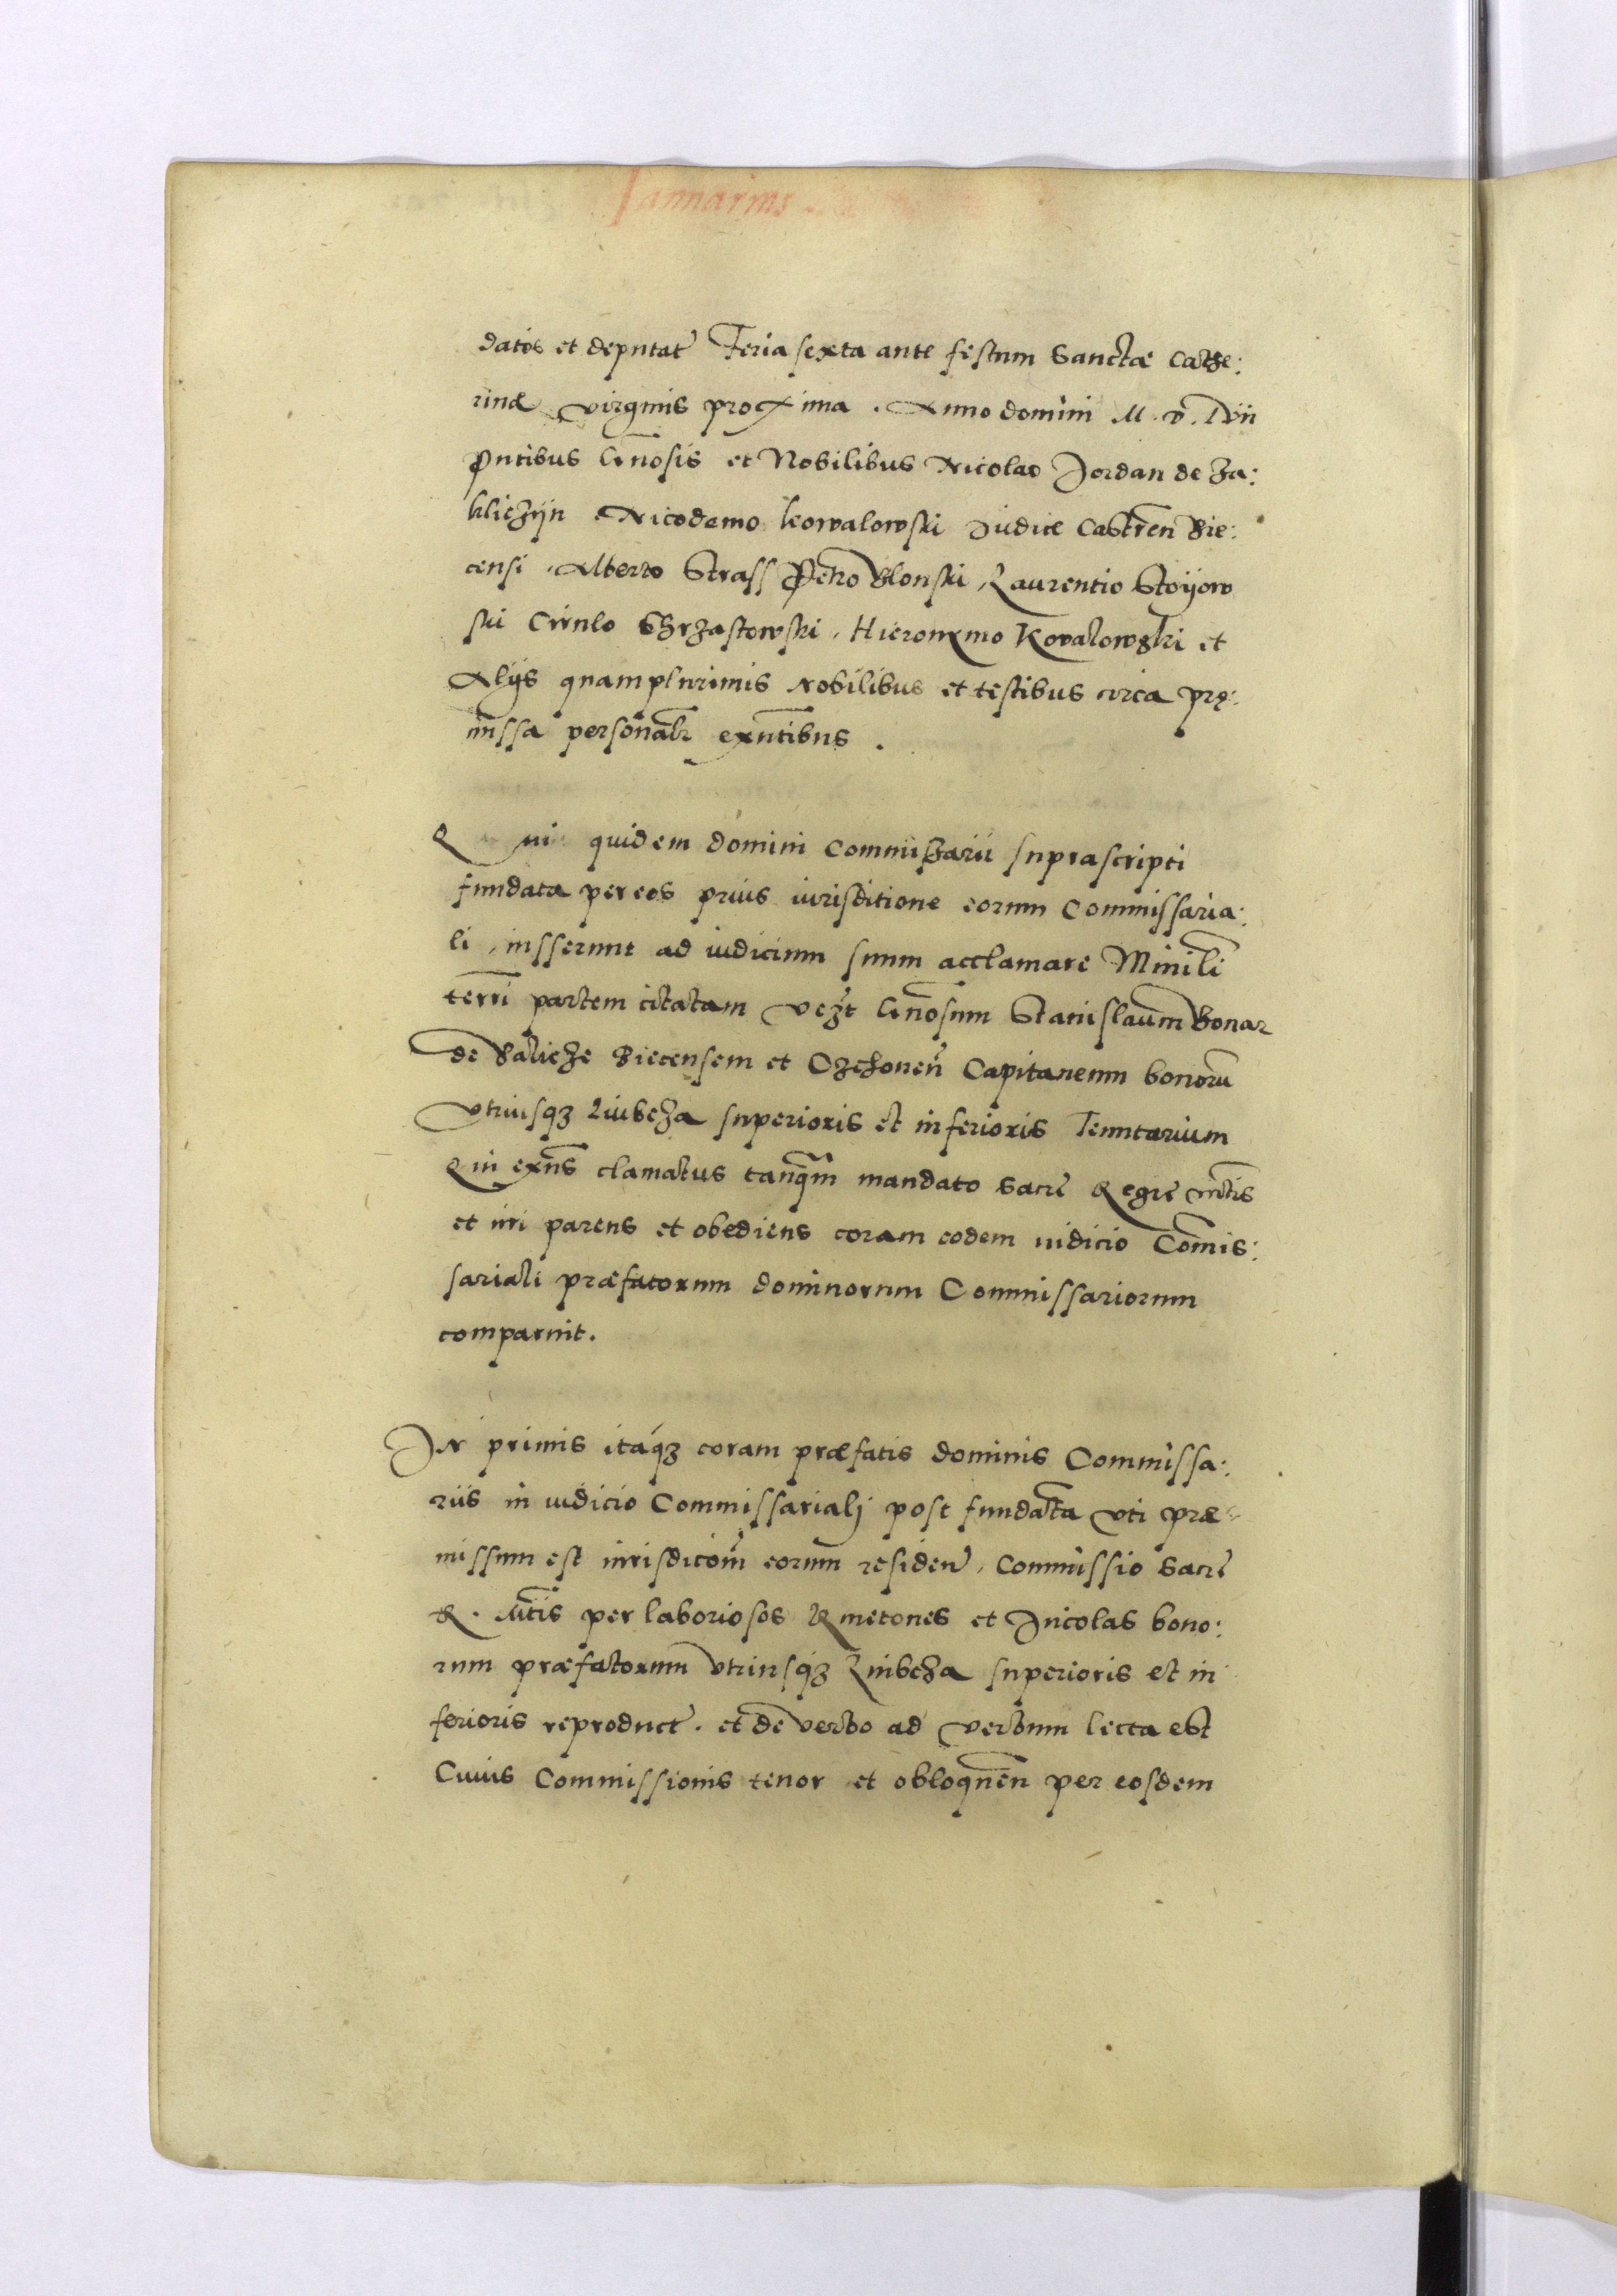 Januarius
datos et deputat̃ Feria sexta ante festum Sanctæ Cathe:
rinæ virginis proxima. Anno domini M. D. Lvii
Pntibus Gn̄osis et Nobilibus Nicolao Jordan de Za:
kliczyn Nicodemo Kowalowski Judice Castren̄ Bie:
censi, Alberto Strass Petro Blonski, Laurentio Stoyow
ski Cirulo Chrzastowski, Hieronymo Kovalowski et
Alijs quamplurimis Nobilibus et testibus circa prę:
missa personalr̄ exn̄tibus.
Qui quidem domini Commissarii suprascripti
fundata per eos prius iurisditione eorum Commissaria:
li, iusserunt ad iudicium suum acclamare Minilē
terrī partem citatam vezt Gn̄osum Stanislaum Bonar
de Balicze Biecensem et Ozchonen̄ Capitaneum bonorū
Vtriusqz Liubcza superioris et inferioris Tenutarium
Qui exn̄s clamatus tanqm̄ mandato Sacrē Regiē mt̄is
et iuri parens et obediens coram eodem iudicio Com̄is:
sariali præfatorum dominorum Commissariorum
comparuit.
In primis itaqz coram præfatis dominis Commissa:
riis in iudicio Commissarialj post fundatā vti præ
missum est iurisdicōm̄ eorum residen̄, Commissio Sacrē
R. Mt̄is per laboriosos Kmetones et Incolas bono:
rum præfatorum vtriusqz Liubcza superioris et in
ferioris reproduct̄. et de verbo ad verbum lecta est
Cuius Commissionis tenor et obloquen̄ per eosdem